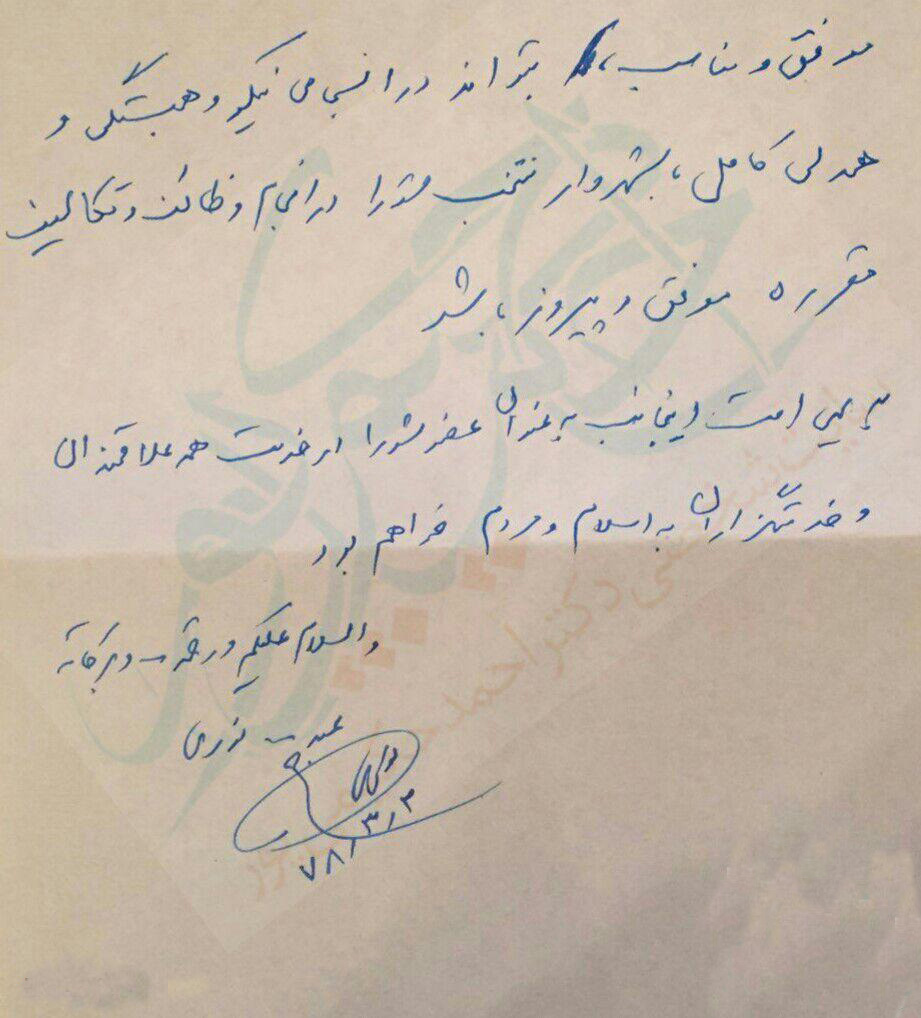 موفق و مناسب، بتواند در انسجامی نیکو و همبستگی و
همدلی کامل، با شهردار منتخب شورا در انجام وظائف و تکالیف
مقرره موفق و پیروز باشد
بدیهی است اینجانب به عنوان عضو شورا در خدمت همه علاقمندان
و خدمتگزاران به اسلام و مردم خواهم بود
والسلام علیکم و رحمة ... و برکاته
عبد ... نوری
۷۸/۳/۳
دکتر احمد